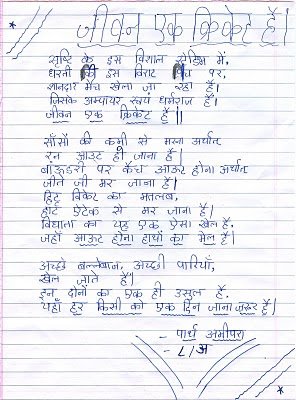 जीवन एक क्रिकेट है।
सृष्टि के इस विशाल स्टेडियम में,
धरती की इस विराट पिच पर,
शानदार मैच खेला जा रहा है।
जिसके अम्पायर स्वयं धर्मराज हैं।
जीवन एक क्रिकेट है।।
साँसों की कमी से मरना अर्थात
रन आउट हो जाना है।
बाऊंडरी पर कैच आऊट होना अर्थात
जीते जी मर जाना है।
हिट विकेट का मतलब,
हार्ट अटैक से मर जाना है।
विधाता का यह एक ऐसा खेल है,
जहाँ आऊट होना हाथों का मेल है।
अच्छे बल्लेबाज, अच्छी पारियाँ,
खेल जाते हैं।
इन दोनों का एक ही उसूल है,
यहाँ हर किसी को एक दिन जाना ज़रूर है।
- पार्थ अमीपरा
- L/अ